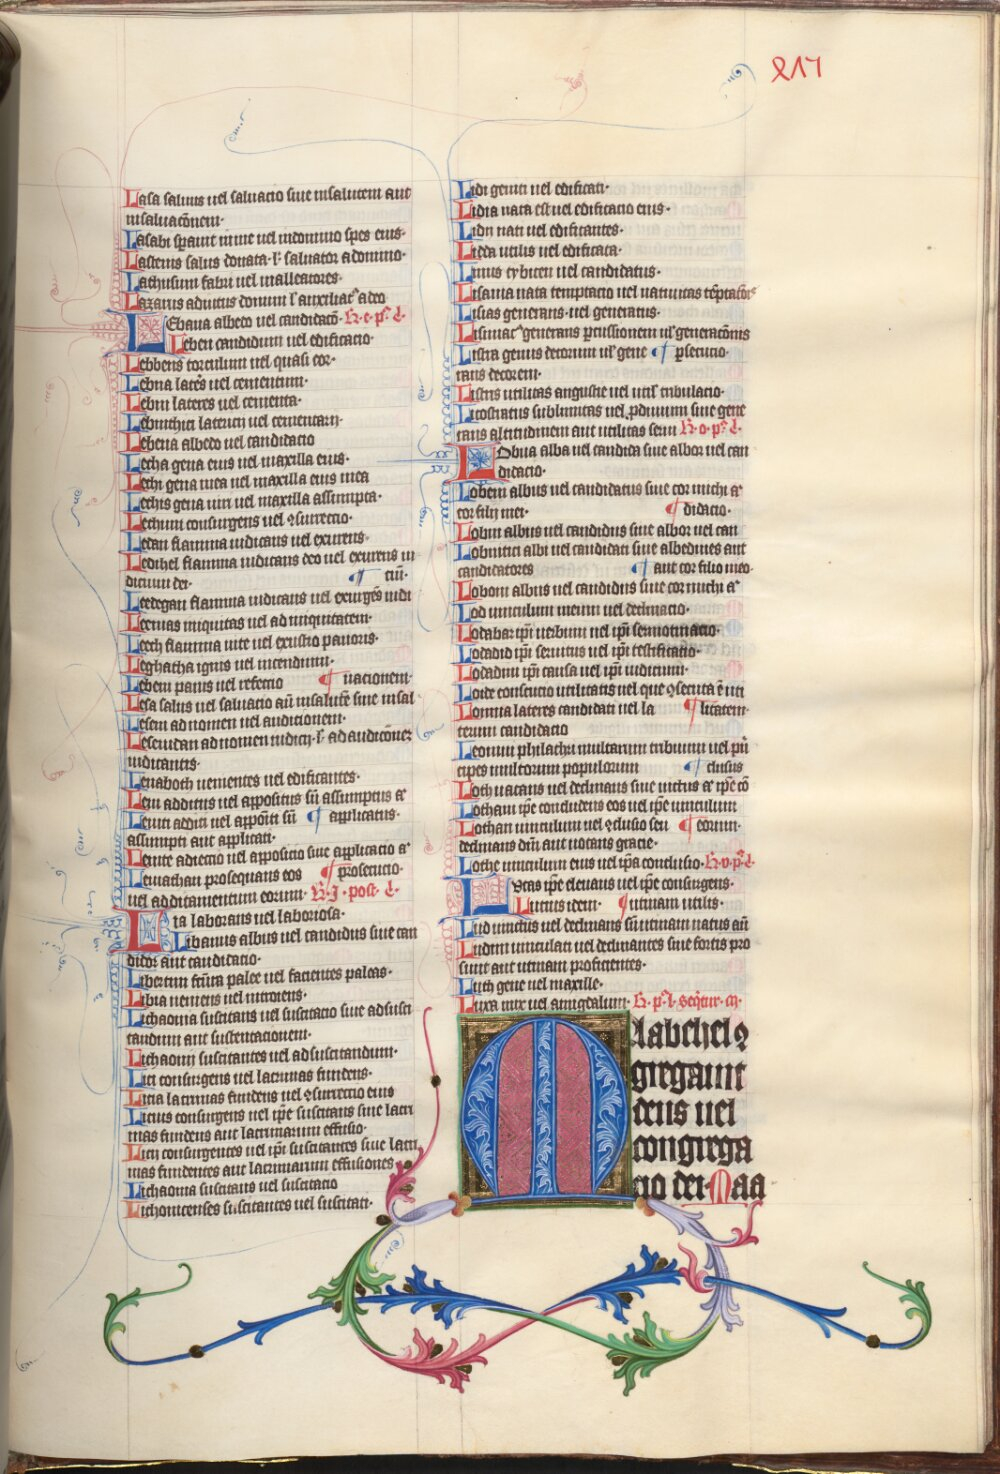 217
Lasa saluus uel saluacio siue insalutem aut
insaluacōnem·
Lasabi sperauit uel indomino spes eius·
Lastenis salus donata· l' saluator adomino·
Lathusum fabri uel malleatores·
Lazarus adiutus domini l' auxiliat' adeo
Lebana albedo uel candidacō· L· e· post· L·
Leben candidum uel edificatio·
Lebbens torculum uel quasi cor·
Lebna later uel cementum·
Lebni lateres uel cementa·
Lebnithici laterici uel cementarii·
Lebena albedo uel candidacio
Lecha gena eius uel maxilla eius·
Lechi gena mea uel maxilla eius mea
Lechis gena uiri uel maxilla assumpta·
Lechum consurgens uel ɔsurrectio·
Ledan flamma iudicans uel exurens·
Ledihel flamma iudicans deo uel exurens iu
dicium dei· ¶ cui·
Leedegan flamma iudicans uel exurgēs iudi
Leemas iniquitas uel ad iniquitatem·
Leech flamma uite uel exustio pauoris·
Leghatha ignis uel incendium·
Lehem panis uel refectio ¶ nacionem·
Lesa salus uel saluacio aut insalutē siue insal
Lesem ad nomen uel audicionem·
Lesemdan ad nomen iudicij· l' ad audicōnez
iudicantis·
Lenaboth uenientes uel edificantes·
Leui additus uel appositus siue assumptus a'
Leuiti additi uel appositi siue ¶ applicatus·
assumpti aut applicati·
Leuite adiectio uel appositio siue applicatio a'
Leuiathan prosequans eos ¶ prosecutio·
uel additamentum eorum· L· I· post· L·
Lia laborans uel laboriosa·
Libanus albus uel candidus siue can
didor aut candidacio·
Libertim palee uel facientes paleas·
Libia ueniens uel introiens·
Lichaoma suscitans uel suscitacio siue adsusci
tandum aut sustentacionem·
Lichaoni suscitantes uel ad suscitandum·
Lici consurgens uel lacrimas fundens·
Licia lacrimas fundens uel ɔsurrectio eius
Licius consurgens uel ipse suscitans siue lacri
mas fundens aut lacrimarum effusio·
Licij consurgentes uel ipsi suscitantes siue lacri
mas fundentes aut lacrimarum effusiones
Lichaoma suscitans uel suscitacio
Lichonicenses suscitantes uel suscitati·
Lidi geniti uel edificati·
Lidia nata est uel edificatio eius·
Lidii nati uel edificantes·
Lieda utilis uel edificata·
Linus uel candidatus·
Lisania nata temptacio uel natiuitas tēptacōis
Lisias generans· uel generatus·
Lisimac' generans percussionem uel generacōnis
Listra genus decorum uel gene ¶ psecutio·
rans decorem·
Listris utilitas anguste uel util' tribulacio·
Licostratus sublimitas uel siue gene
rans altitudinem aut utilitas seui L· o· post· L·
Lobna alba uel candida siue albor uel can
didacio·
Lobem albus uel candidatus siue cor michi a'
cor filij mei· ¶ didacio·
Lobni albus uel candidus siue albor uel can
Lobnitici albi uel candidati siue albedines aut
candidatores ¶ aut cor filio meo·
Loboni albus uel candidus siue cor michi a'
Lod uinculum meum uel declinacio·
Lodabar ipsi uerbum uel ipsi sermocinatio·
Lodadid ipsi seruitus uel ipsi testificatio·
Lodadim ipsi causa uel ipsi iudicium·
Loide consecutio utilitatis uel que ɔsecuta ē uti
Lomna lateres candidati uel la ¶ litatem·
terum candidacio
Leomim philachi multarum tribuum uel prin
cipes multorum populorum ¶ clusus
Loth uacans uel declinans siue uinctus a' ipse cō
Lotham ipse concludens eos uel ipse uinculum
Lothan uinculum uel ɔclusio seu ¶ eorum·
declinans dei aut uocans gracie·
Lothe uinculum eius uel ipsa conclusio· L· v· p· L·
Lucas ipse eleuans uel ipse consurgens·
Lucius idem· ¶ utinam utilis·
Lud uinctus uel declinans siue utinam natus aut
Ludim uinculati uel declinantes siue fortis pro
sunt aut utinam proficientes·
Luith gene uel maxille·
Luxa nux uel amigdalum· L· p· l· seqitur· m·
Mabthel ɔ
gregauit
deus uel
congrega
cio dei· Naa